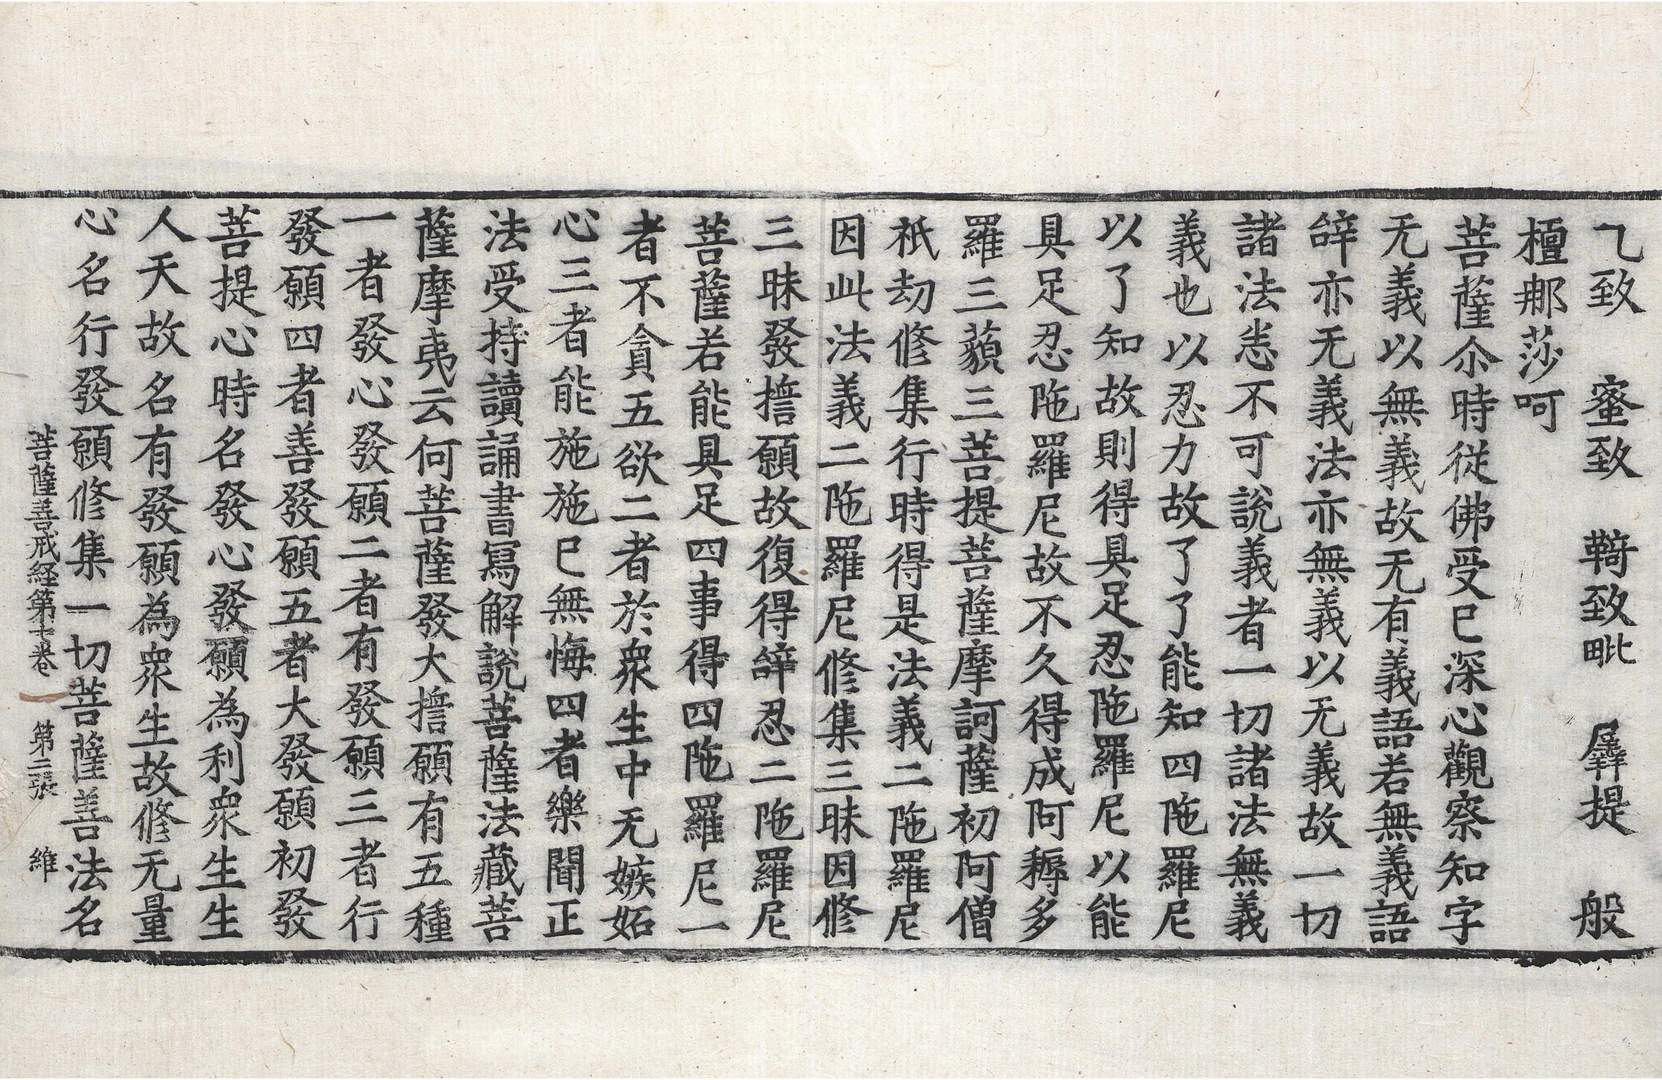 乁致 蜜致 鞞致毗 羼提 般
檀那莎呵
菩薩尒時從佛受已深心觀察知字
无義以無義故无有義語若無義語
辝亦无義法亦無義以无義故一切
諸法悉不可說義者一切諸法無義
義也以忍力故了了能知四陁羅尼
以了知故則得具足忍陁羅尼以能
具足忍陁羅尼故不久得成阿耨多
羅三藐三菩提菩薩摩訶薩初阿僧
祇劫修集行時得是法義二陁羅尼
因此法義二陁羅尼修集三昧因修
三昧發擔願故復得辝忍二陁羅尼
菩薩若能具足四事得四陁羅尼一
者不貪五欲二者於衆生中无嫉妬
心三者能施施已無悔四者樂聞正
法受持讀誦書寫解說菩薩法藏菩
薩摩夷云何菩薩發大擔願有五種
一者發心發願二者有發願三者行
發願四者善發願五者大發願初發
菩提心時名發心發願為利衆生生
人天故名有發願為衆生故修无量
心名行發願修集一切菩薩善法名
菩薩善戒経第七卷 第二張 維